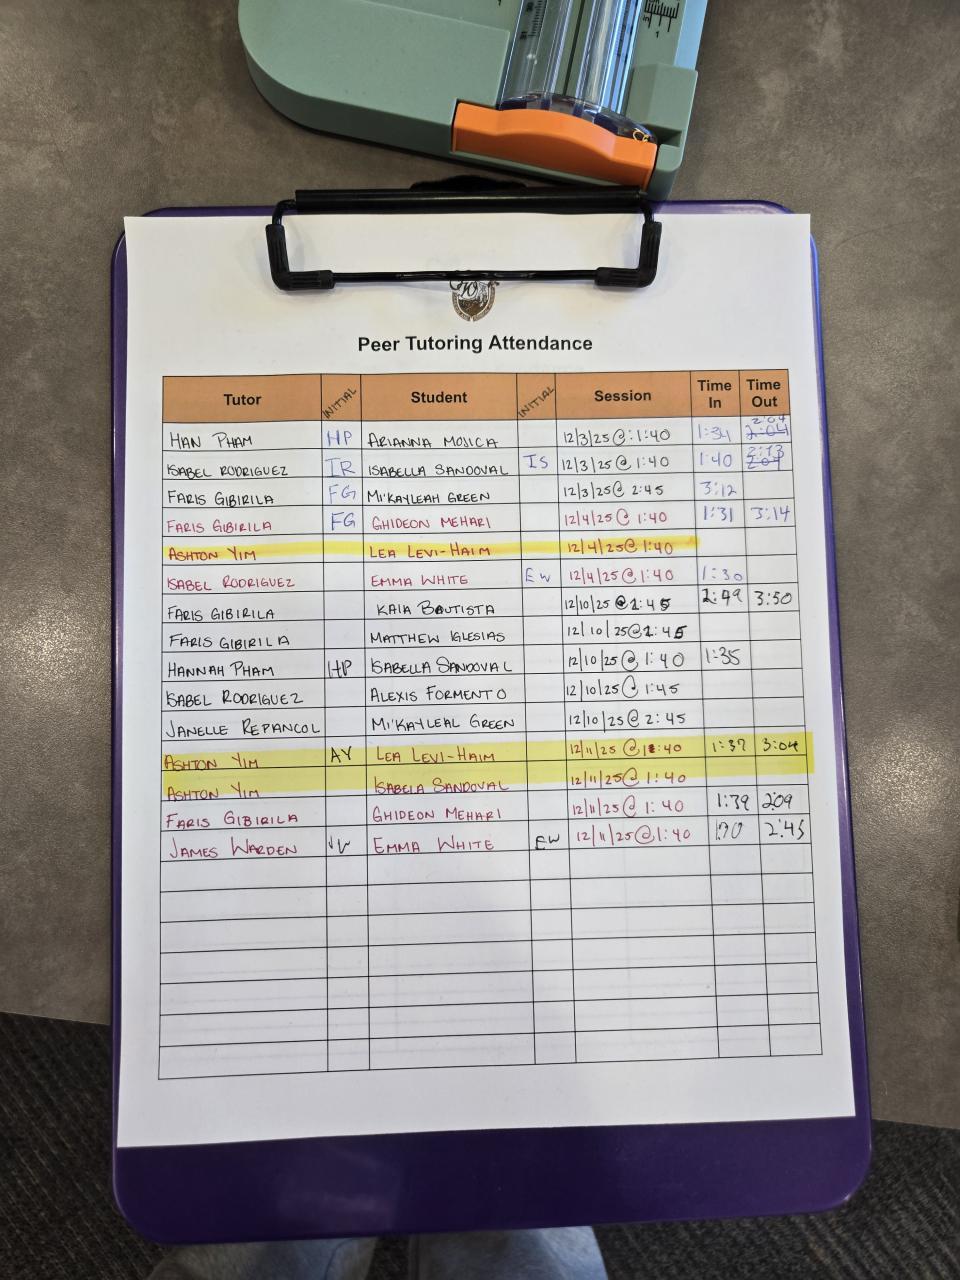 Peer Tutoring Attendance
Tutor INITIAL Student INITIAL Session Time In Time Out
HAN PHAM HP ARIANNA MOJICA 12/3/25 @ 1:40 1:34 2:04 2:04
ISABEL RODRIGUEZ IR ISABELLA SANDOVAL IS 12/3/25 @ 1:40 1:40 2:13 2:04
FARIS GIBIRILA FG MI'KAYLEAH GREEN 12/3/25 @ 2:45 3:12
FARIS GIBIRILA FG GHIDEON MEHARI 12/4/25 @ 1:40 1:31 3:14
ASHTON YIM LEA LEVI-HAIM 12/4/25 @ 1:40
ISABEL RODRIGUEZ EMMA WHITE EW 12/4/25 @ 1:40 1:30
FARIS GIBIRILA KAIA BAUTISTA 12/10/25 @ 2:45 2:49 3:50
FARIS GIBIRILA MATTHEW IGLESIAS 12/10/25 @ 2:45
HANNAH PHAM HP ISABELLA SANDOVAL 12/10/25 @ 1:40 1:35
ISABEL RODRIGUEZ ALEXIS FORMENTO 12/10/25 @ 1:45
JANELLE REPANCOL MI'KAYLEAL GREEN 12/10/25 @ 2:45
ASHTON YIM AY LEA LEVI-HAIM 12/11/25 @ 1:40 1:37 3:04
ASHTON YIM ISABELA SANDOVAL 12/11/25 @ 1:40
FARIS GIBIRILA GHIDEON MEHARI 12/11/25 @ 1:40 1:39 2:09
JAMES WARDEN JW EMMA WHITE EW 12/11/25 @ 1:40 2:45